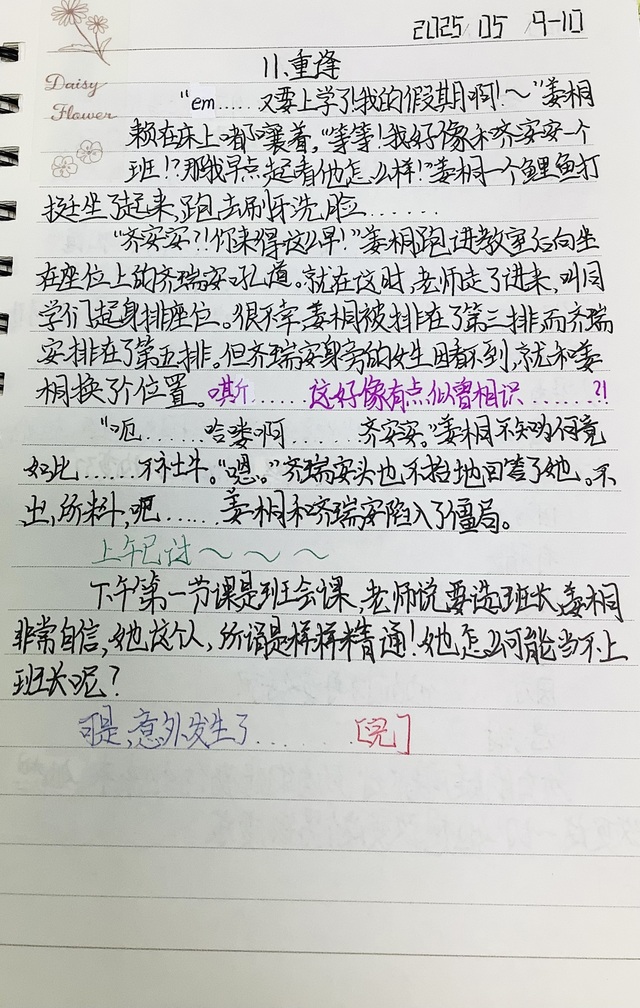 2025/05/9-10
Daisy
Flower
11.重逢
“em.....又要上学了!我的假期啊!~”姜桐
赖在床上嘟囔着,“等等!我好像和齐安安一个
班!?那我早点起看他怎么样!”姜桐一个鲤鱼打
挺坐了起来,跑去刷牙洗脸......
“齐安安?!你来得这么早!”姜桐跑进教室后向坐
在座位上的齐瑞安吼道。就在这时,老师走了进来,叫同
学们起身排座位。很不幸,姜桐被排在了第三排,而齐瑞
安排在了第五排。但齐瑞安身旁的女生因看不到,就和姜
桐换了个位置。嘶......这好像有点似曾相识......?!
“呃......哈喽啊......齐安安。”姜桐不知为何竟
如此......不社牛。“嗯。”齐瑞安头也不抬地回答了她。不
出,所料,吧......姜桐和齐瑞安陷入了僵局。
上午已过~~~
下午第一节课是班会课,老师说要选班长,姜桐
非常自信,她这个人,所谓是样样精通!她怎么可能当不上
班长呢?
可是,意外发生了.......[完]